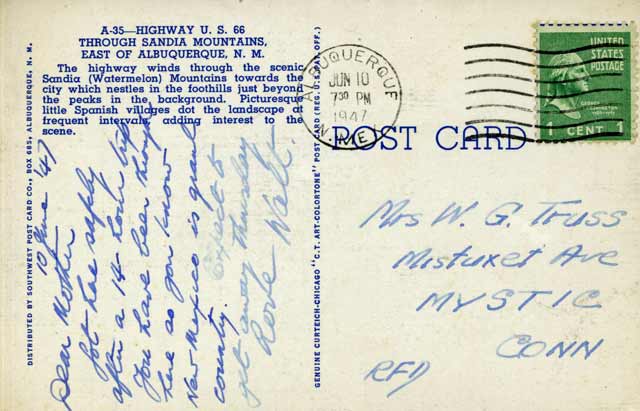 A-35—HIGHWAY U. S. 66
THROUGH SANDIA MOUNTAINS,
EAST OF ALBUQUERQUE, N. M.
The highway winds through the scenic
Sandia (Watermelon) Mountains towards the
city which nestles in the foothills just beyond
the peaks in the background. Picturesque
little Spanish villages dot the landscape at
frequent intervals adding interest to the
scene.
DISTRIBUTED BY SOUTHWEST POST CARD CO., BOX 685, ALBUQUERQUE, N. M.
10 June '47
Dear Mother
Got here safely
after a 14 hour trip
You have been through
here so you know
New Mexico is grand
country. Expect to
get away Thursday
Love Walt.
GENUINE CURTEICH-CHICAGO "C. T. ART-COLORTONE" POST CARD (REG. U. S. PAT. OFF.)
ALBUQUERQUE
JUN 10
7 30 PM
1947
N. MEX.
UNITED
STATES
POSTAGE
GEORGE
WASHINGTON
1 CENT 1
POST CARD
Mrs W. G. Truss
Mistuxet Ave
MYSTIC
CONN
RFD